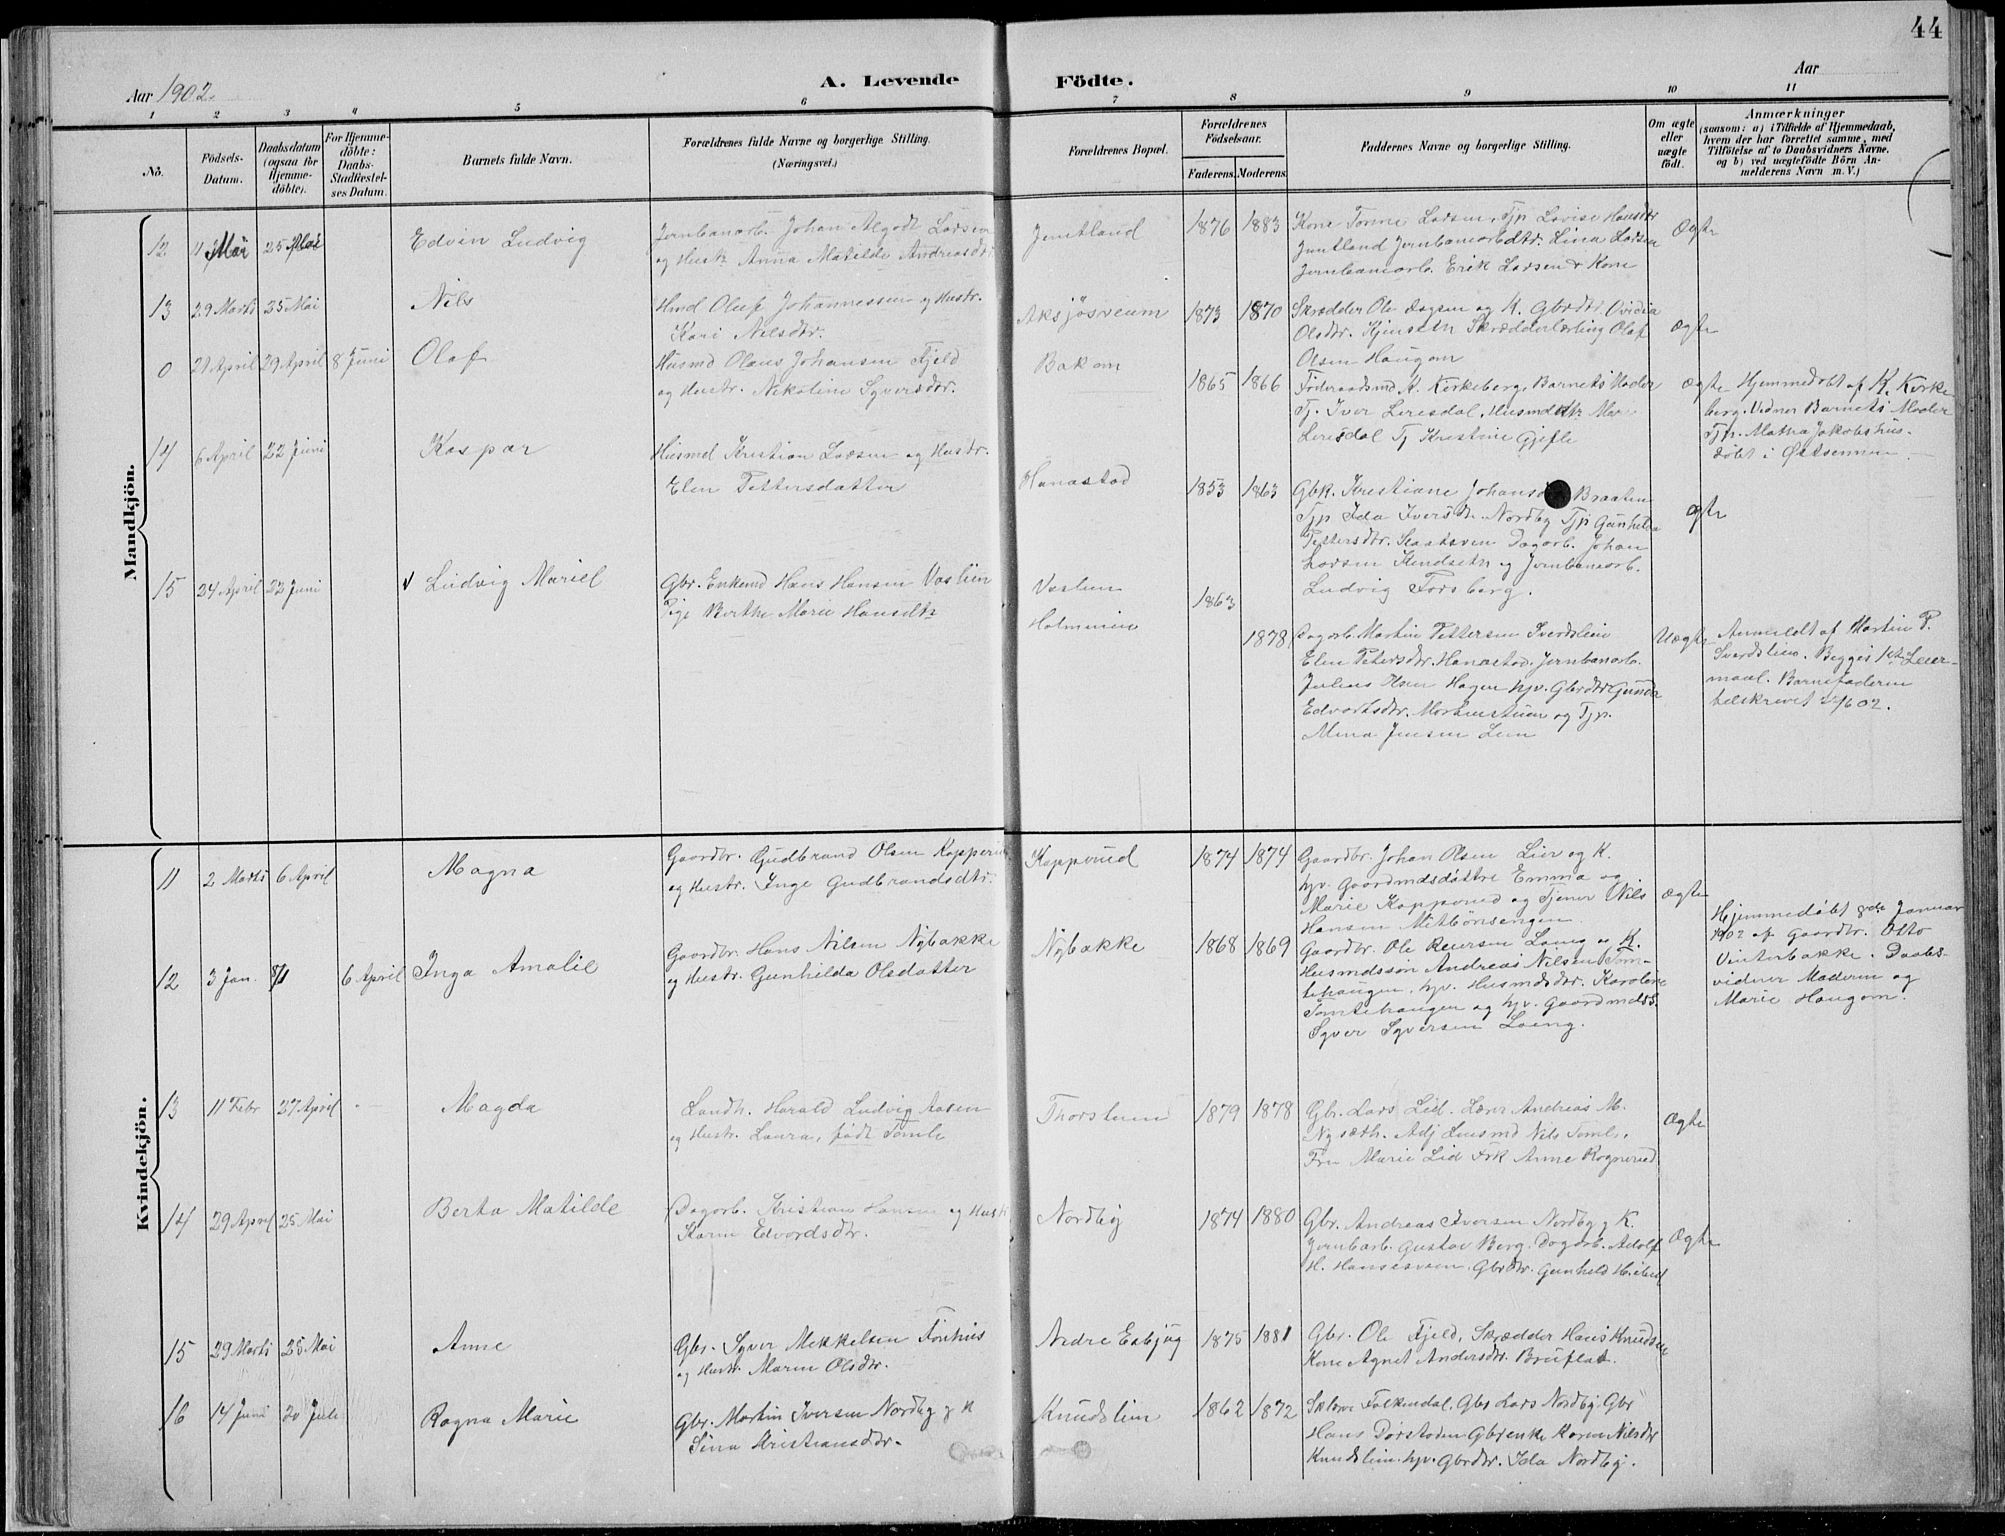 44
Aar 1902.
A. Levende Födte.
Aar
1 2 3 4 5 6 7 8 9 10 11
No.
Födsels-Datum.
Daabsdatum (ogsaa for Hjemme-döbte).
For Hjemme-döbte: Daabs-Stadfæstel-ses Datum.
Barnets fulde Navn.
Forældrenes fulde Navne og borgerlige Stilling.
(Næringsvei.)
Forældrenes Bopæl.
Forældrenes Födselsaar.
Faderens. Moderens.
Faddernes Navne og borgerlige Stilling.
Om ægte eller uægte födt.
Anmærkninger
(saasom: a) i Tilfælde af Hjemmedaab, hvem der har forrettet samme, med Tilföielse af to Daabsvidners Navne, og b) ved uægtefödte Börn An-melderens Navn m. V.)
Mandkjön.
12 11 Mai 25 Mai Edvin Ludvig
Jernbanarb. Johan Algodt Larsen
og Hustr. Anna Matilde Andreasdtr.
Jemtland 1876 1883
Kone Tonne Larsen, Tjp Lovise Hansdtr
Jemtland Jernbanarbdtr. Lina Larsen
Jernbanearb. Erik Larsen & Kone
Ægte
13 29 Marts 25 Mai Nils
Hmd Oluf Johannessen og Hustr.
Kari Nilsdtr.
Aksjøsveum 1873 1870
Skrædder Ole Dagsen og K. Gbrdtr. Ovidia
Olsdtr. Kjenseth Skrædderlærling Olaf
Olsen Haugom
ægte
0 21 April 29 April 8 Juni Olaf
Husmd Olaus Johansen Fjeld
og Hustr. Nikoline Syversdtr.
Bakom 1865 1866
Føderaadsmd A. Kirkeberg, Barnets Moder
Tj. Iver Leresdal, Husmdtr Mari
Leresdal Tj Kristine Gjefle
ægte
Hjemmedøbt af K. Kirke
berg. Vidner Barnets Moder
Tjp. Mathea Jakobshus-
døbt i
14 6 April 22 Juni Kaspar
Husmd Kristian Larsen og Hustr.
Elen Pettersdatter
Hanastad 1853 1863
Gbk. Kristiane Johansd Braaten
Tjp Ida Iversdtr. Nordby Tjp Gunhild
Pettersdtr. Dagarb. Johan
Larsen og Jernbanarb.
Ludvig Forsberg.
ægte
15 24 April 22 Juni Ludvig Mariel
Gbr. Enkemd Hans Hansen Vaslien
Pige Berthe Marie Hansdtr
Vaslien
Holmmien
1863
1878
Dagarb. Martin Pettersen Sverdslien
Elen Petersdtr. Hanastad. Jernbanarb.
Julius Olsen Hagen hjv. Gbrdtr Gunda
Edvartsdtr. Mortenstuen og Tjp.
Mina Jensen Lien
Uægte
Anmeldt af Martin P.
Sverdslien. Begges 1ste Leier-
maal. Barnefaderen
tilskrevet 02.
Kvindekjön.
11 2 Marts 6 April Magna
Gaardbr. Gudbrand Olsen Kopperud
og Hustr. Inge Gudbrandsdtr.
Kopperud 1874 1874
Gaardbr. Johan Olsen Lier og K.
hjv. Gaardmdsdøttre Emma og
Marie Kopperud og Tjener Nils
Hansen Mitbönsengen.
ægte
12 3 Jan. 8/1 6 April Inga Amalie
Gaardbr. Hans Nilsen Nybakke
og Hustr. Gunhilda Olsdatter
Nybakke 1868 1869
Gaardbr. Ole Reiersen Loeng og K.
Husmdssön Andreas Nilsen Tom-
tehaugen, hjv. Husmdsdtr. Karoline
Tomtehaugen og hjv. Gaardmdss.
Syver Syversen Loeng.
Hjemmedøbt 8de Januar
1902 af Gaardbr. Otto
Vinterbakke. Daabs-
vidner Moderen og
Marie Haugom.
13 11 Febr 27 April Magda
Landh. Harald Ludvig Aasen
og Hustr. Laura, født Tomle
Thorstuen 1879 1878
Gbr. Lars Lid. Lærer Andreas M.
Nysæth. Adj Lensmd Nils Tomle,
Fru Marie Lid Frk Anne Rognerud
Ægte
14 29 April 25 Mai Berta Matilde
Dagarb. Kristian Hansen og Hustr
Karen Edvardsdtr.
Nordby 1874 1880
Gbr. Andreas Iversen Nordby & K.
Jernbarb. Gustav Berg. Dagarb. Adolf
H. Hansesveen. Gbrdtr. Gunhild
Ægte
15 29 Marts 25 Mai Anne
Gbr. Syver Mekkelsen Fönhus
og Hustr. Maren Olsdtr.
Nedre Esbjug 1875 1881
Gbr. Ole Fjeld, Skrædder Hans Knudsen
Kone Agnet Andersdtr. Bruflat.
16 14 Juni 20 Juli Ragna Marie
Gbr. Martin Iversen Nordby & K
Sina Kristiansdtr.
Knudslien 1862 1872
Folkendal, Gbr Lars Nordby, Gbr
Hans Dørstaden Gbrenke Karen Nilsdtr
Knudslien. hjv. Gbrdtr. Ida Nordby.